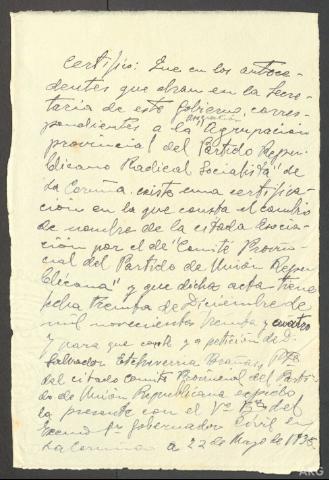 Certifico: Que en los antece-
dentes que obran en la Secre-
taria de este Gobierno, corres-
pondientes a la "Agrupación
provincial del Partido Repu-
blicano Radical Socialista" de
La Coruña, existe una certifica-
ción en la que consta el cambio
de nombre de la citada Asocia-
ción por el de "Comité Provin-
cial del Partido de Unión Repu-
blicana" y que dicha acta tiene
fecha treinta de Diciembre de
mil novecientos treinta y cuatro
y para que conste y a petición de D.
Salvador Etcheverria Brañas,
del citado Comité Provincial del Parti-
do de Unión Republicana expido
la presente con el Vº Bº del
Excmo Sr Gobernador Civil en
La Coruña a 22 de Mayo de 1935
ARG